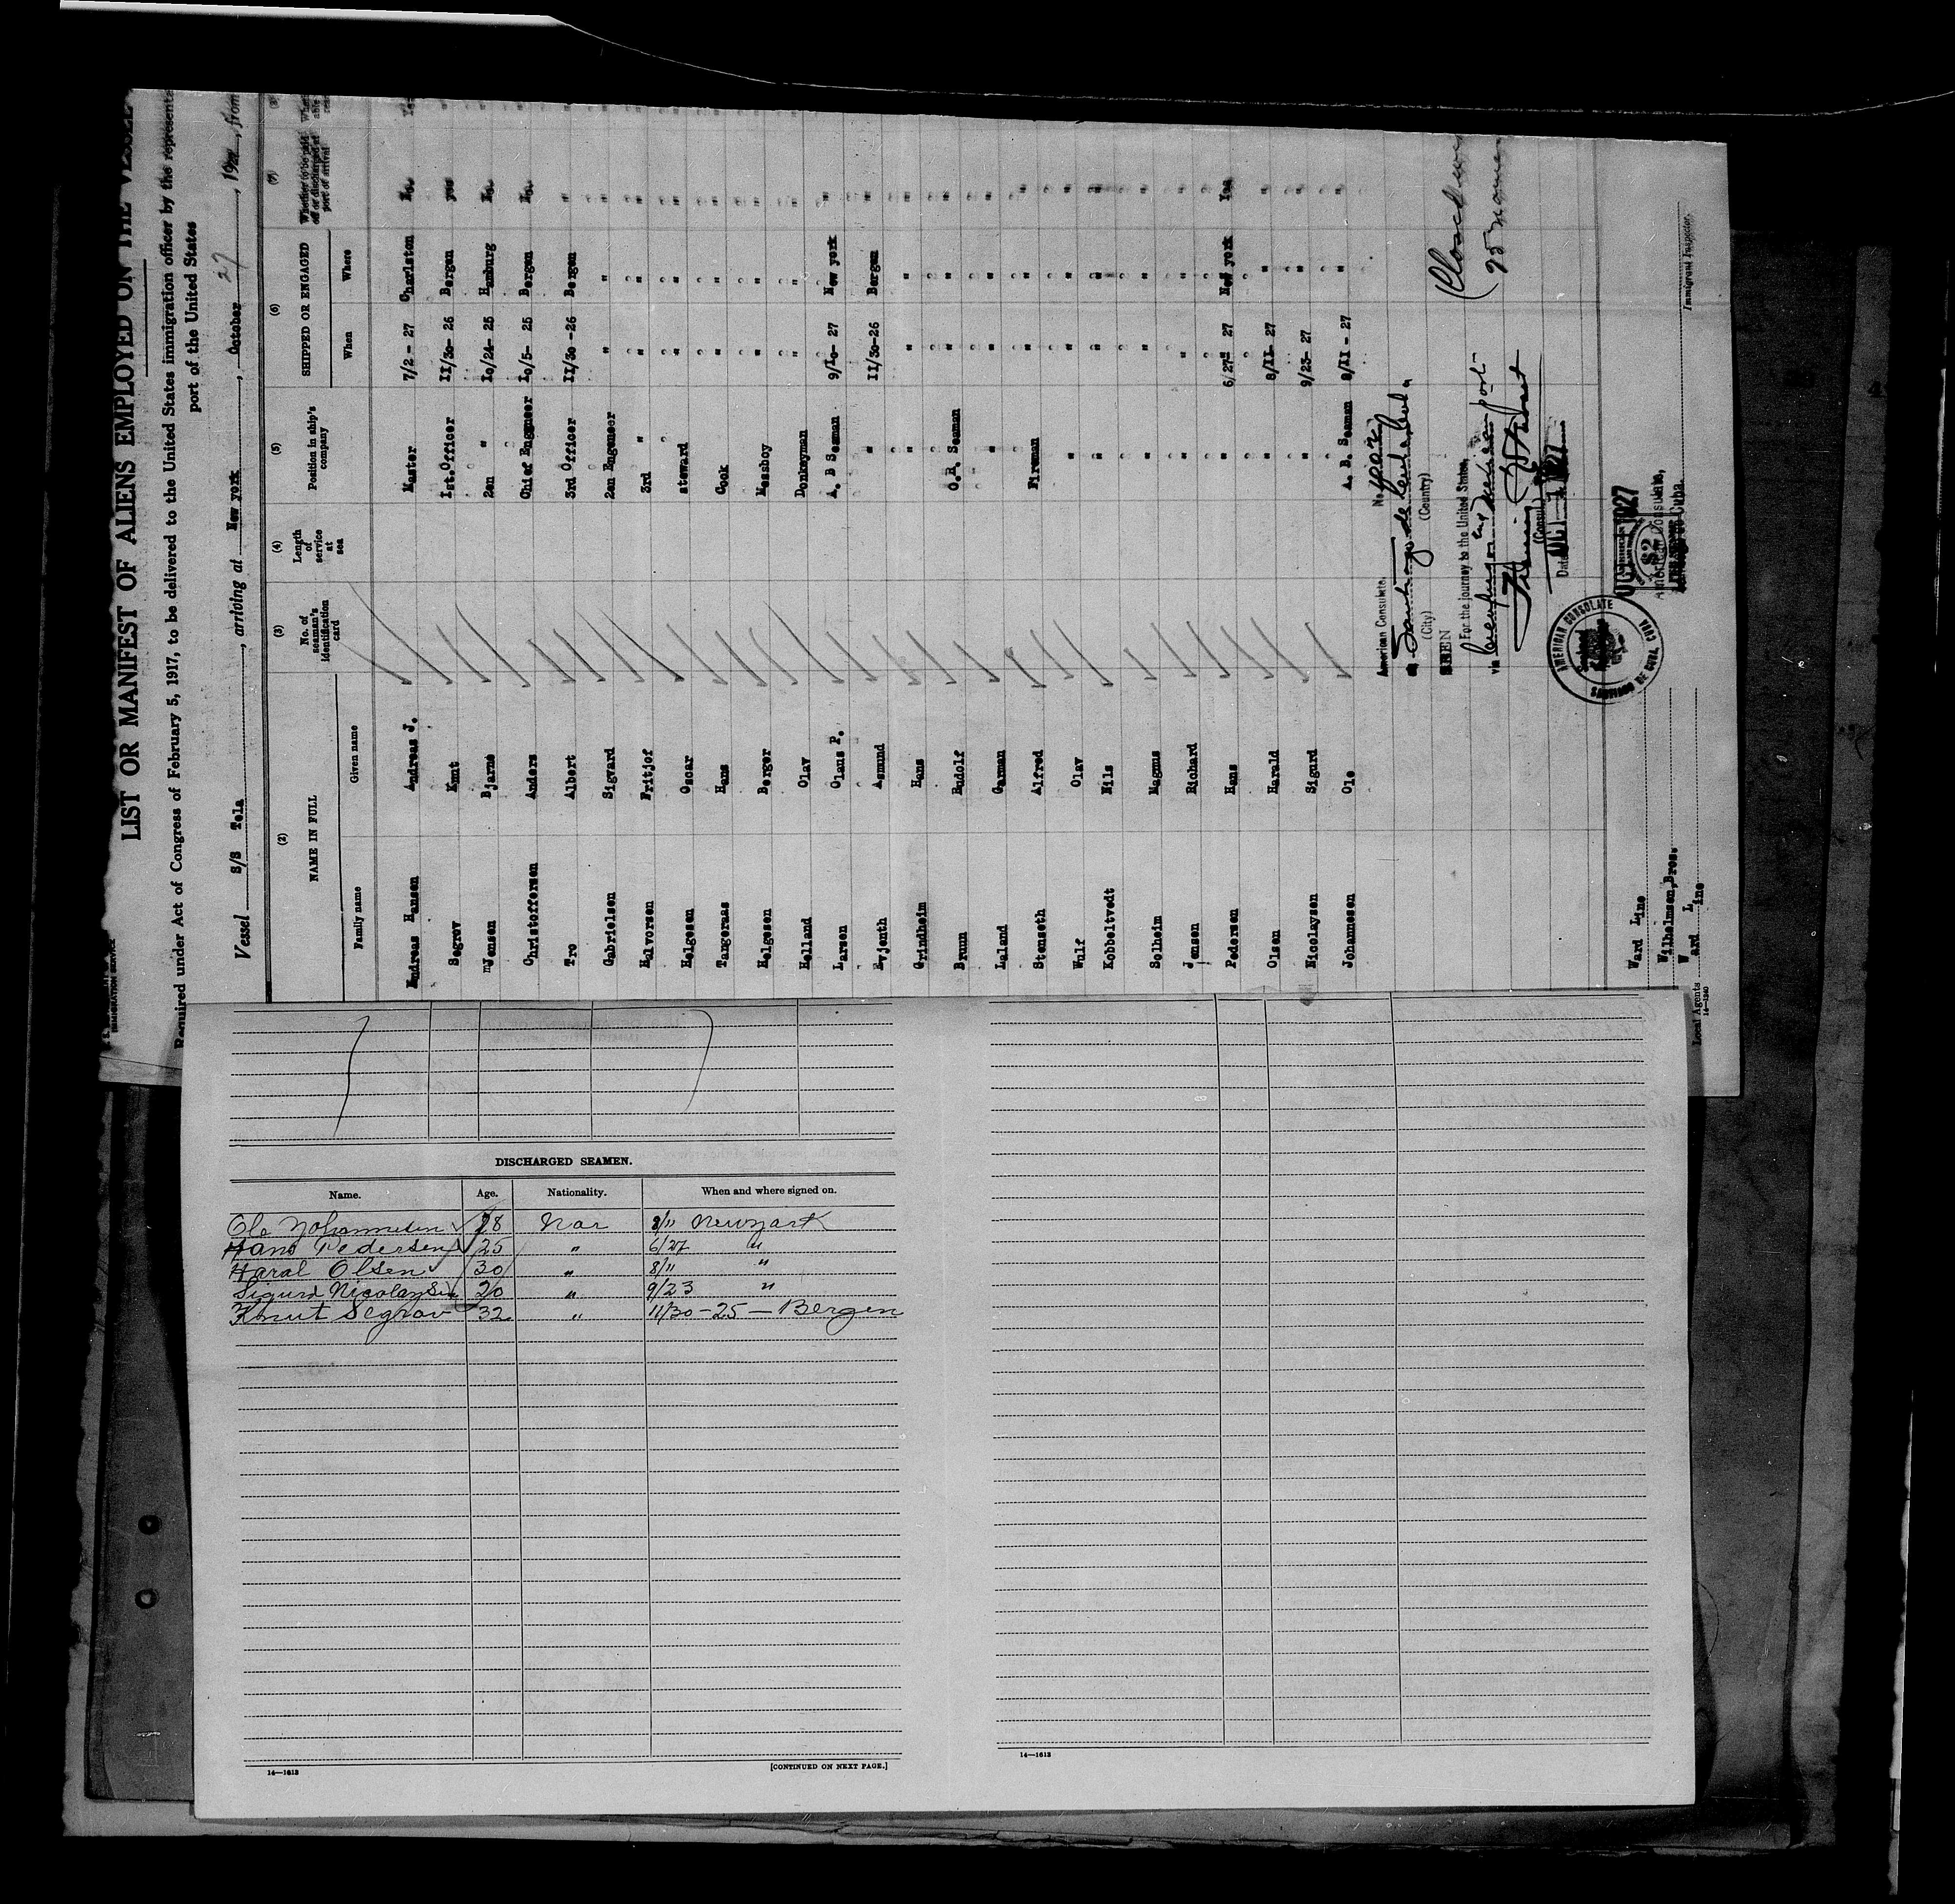 LIST OR MANIFEST OF ALIENS EMPLOYED ON THE VESSEL
Required under Act of Congress of February 5, 1917, to be delivered to the United States immigration officer by the represent
port of the United States
Vessel S/S Tela, arriving at New york, October 27, 19, from
(2) (3) (4) (5) (6) (7)
NAME IN FULL No. of seaman's identification card Length of service at sea Position in ship's company SHIPPED OR ENGAGED Whether to be paid off or discharged at port of arrival
Family name Given name When Where
Andreas Hansen Andreas J. Master 7/2 - 27 Charlston No.
Segrov Knut Ist.Officer II/30- 26 Bergen yes
Jensen Bjarne 2en " Io/24- 25 Hamburg No.
Christoffersen Anders Chief Enggneer Io/5- 25 Bergen No.
Tro Albert 3rd Officer II/30 -26 Bergen "
Gabrielsen Sigvard 2en Engeneer " " "
Halvorsen Fritjof 3rd " " " "
Helgesen Oscar steward " " "
Tangeraas Hans Cook " " "
Helgesen Berger Messboy " " "
Helland Olav Donkeyman " " "
Larsen Claus P. A. B Seaman 9/Io- 27 New york "
Evjenth Asmund " II/30-26 Bergen "
Grindheim Hans " " " "
Bruun Rudolf O.R. Seaman " " "
Laland Garman " " " "
Stenseth Alfred Fireman " " "
Wulf Olav " " " "
Kobbeltvedt Nils " " " "
Solheim Magnus " " " "
Jensen Richard " " " "
Pedersen Hans " 6/27" 27 New york Yes
Olsen Harald " 8/II- 27 " "
Nicolaysen Sigurd " 9/23- 27 " "
Johannesen Ole A. B. Seaman 8/II - 27 " "
American Consulate, No.
at Santiago de Cuba, Cuba
(City) (Country)
SEEN
For the journey to the United States,
via
(Consul)
Date OCT 1927
AMERICAN CONSULATE
SANTIAGO DE CUBA, CUBA
$2
American Consulate,
Santiago de Cuba.
Ward Line
Wilhelmsen,Bros.
Ward Line
Local Agents
14—1240
Immigrant Inspector.
DISCHARGED SEAMEN.
Name. Age. Nationality. When and where signed on.
Ole Johannesen 28 Nor 8/11 Newyork
Hans Pedersen 25 " 6/27 "
Haral Olsen 30 " 8/11 "
Sigurd Nicolaysen 20 " 9/23 "
Knut Segrov 32 " 11/30-25—Bergen
14—1613
[CONTINUED ON NEXT PAGE.]
14—1613